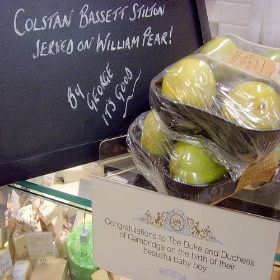 COLSTAN BASSETT STILTON
SERVED ON WILLIAM PEAR!
BY
GEORGE
IT'S GOOD
Congratulations to The Duke and Duchess
of Cambridge on the birth of their
beautiful baby boy